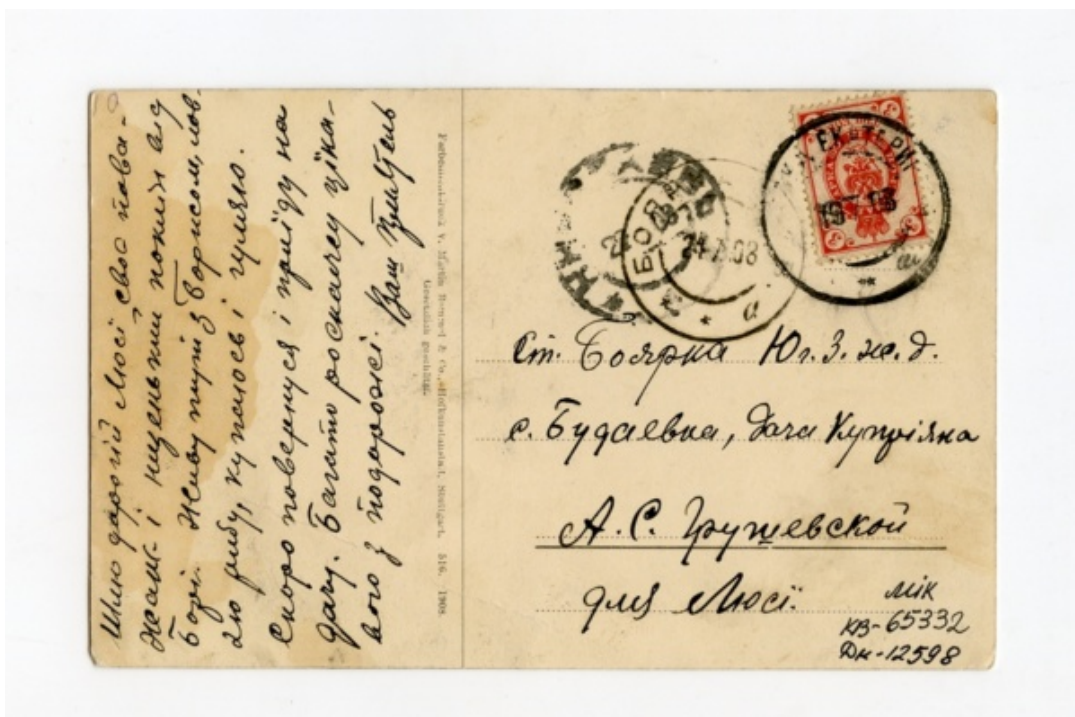 Шлю дорогій Люсі своє поважанє і ниценький поклін від
Борі. Живу тут з Борисом, ловлю рибу, купаюсь і гуляю.
Скоро повернуся і приїду на
дачу. Багато роскажу ціка-
вого з подорожі. Ваш
V. Martin Rommel & Co., Hofkunstanstalt, Stuttgart. 516. 1908.
Gesetzlich geschützt.
ЕКАТЕРИН
БОЯРКА
7.08
а
Ст. Боярка Юг. З. ж. д.
с. Будаевка, дача Купріяна
А. С. Грушевской
для Люсі.
МІК
КВ-65332
Дк-12598